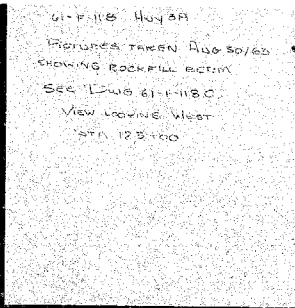 61-F-118 HWY 3A
PICTURES TAKEN AUG 30/63
SHOWING ROCKFILL BERM
SEE DWG 61-F-118C
VIEW LOOKING WEST
STA 125+00